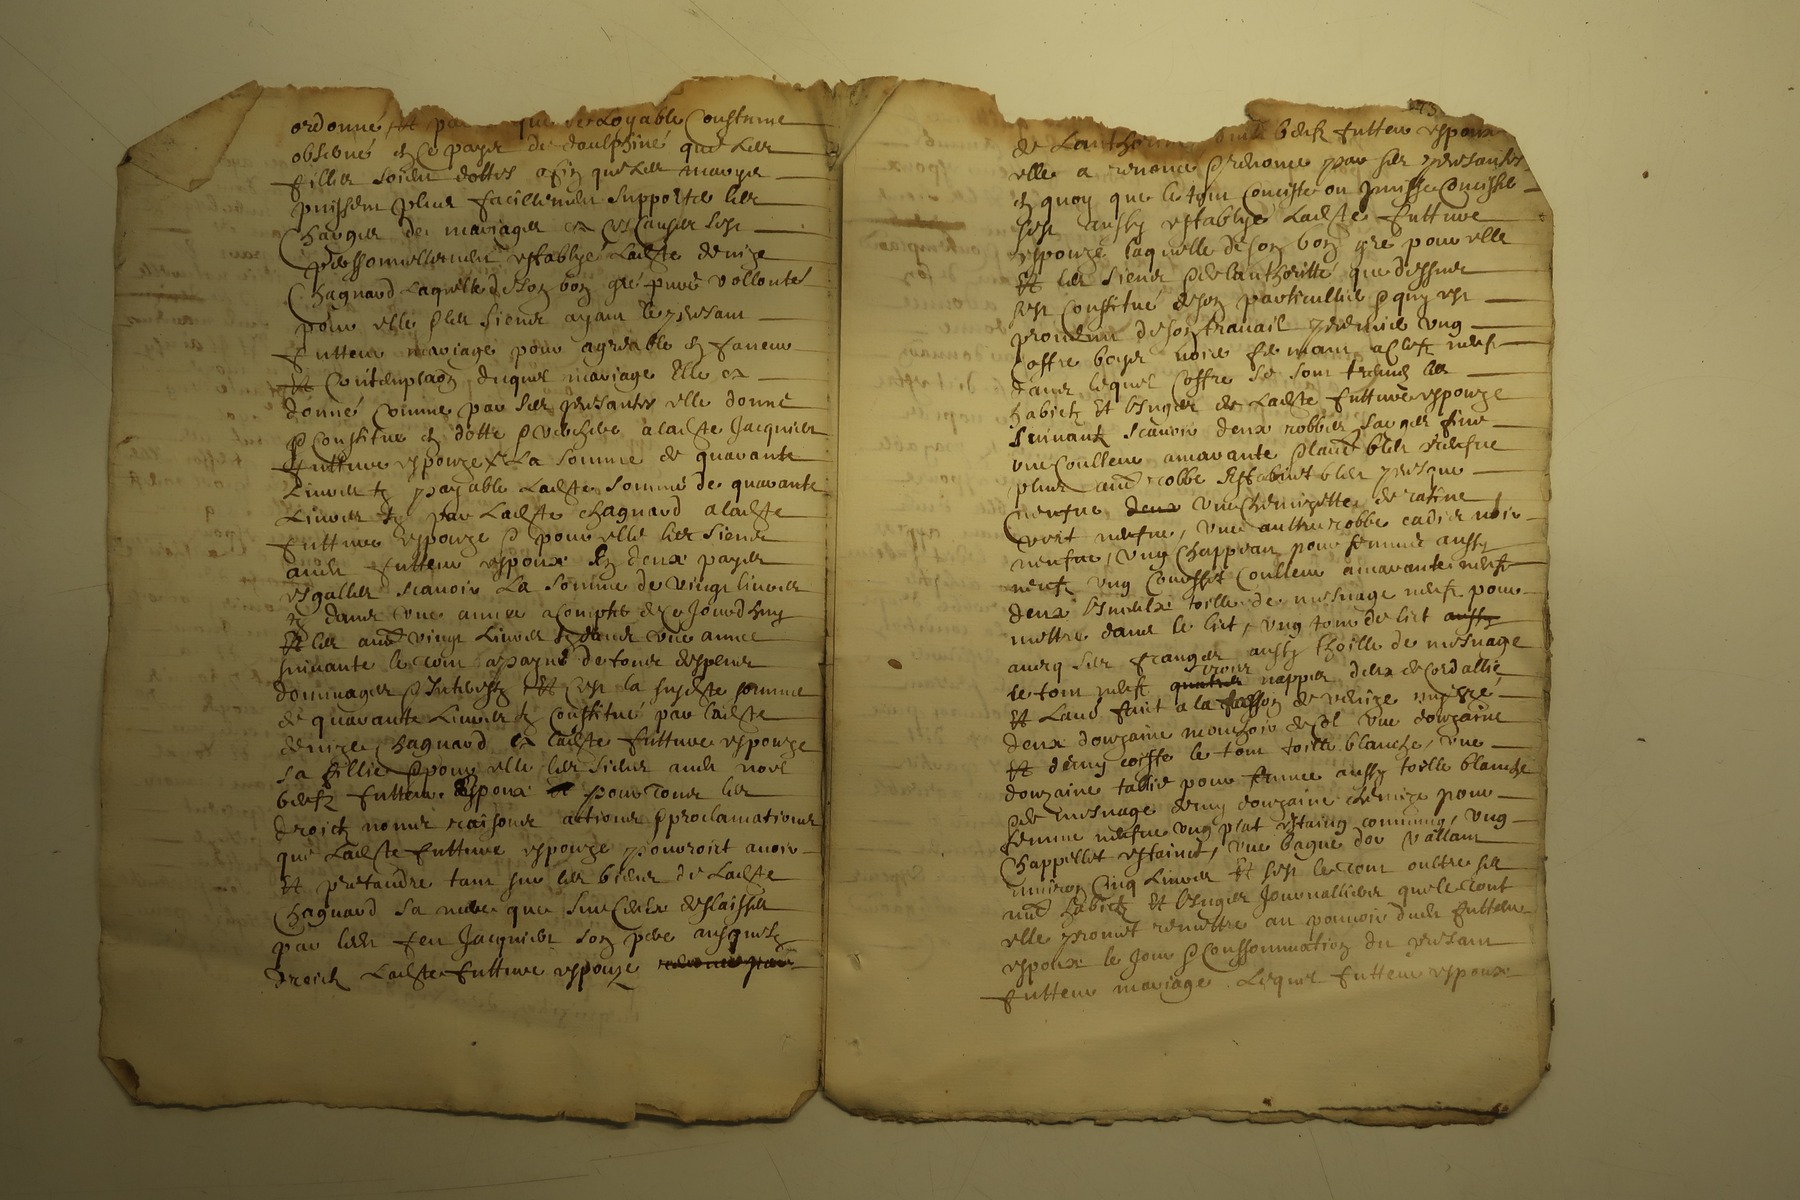 ordonné et pa que de Loyable Coustume
observé en ce payis de daulphiné que les
filles soient dottes afin que les maryes
puissent plus facillement supporter les
Charges de mariage a ces causes sest
personnellement establye Ladite denize
Chagnard Laquelle de son bon gré pure vollonté
pour elle & les siens ayant le presant
futteur mariage pour agreable en faveur
et Contemplaon duquel mariage Elle a
donné comme par ses presantes elle donne
& Constitue en dotte & verchere a ladite Jacquier
futture espouze La somme de quarante
Livres tz payable Ladite somme de quarante
Livres tz par Ladite Chagnard a ladite
futture espouze & pour elle les siens
audit futteur espoux En deux payes
esgalles scavoir La somme de vingt livres
tz dans une annee a compter de ce Jourdhuy
Et les aud vingt Livres tz dans une annee
suivante le tout a payne de tous despens
dommages & Interestz Et cest la susdite somme
de quarante Livres tz constitué par ladite
denize Chagnard a ladite futture espouze
sa fillie & pour elle les siens audit
futteur Espoux pour tous les
droictz noms raisons actions & proclamations
que Ladite futture espouze pourroict avoir
Et pretandre tant sur les biens de Ladite
Chagnard sa mere que sur ceux deslaisses
par ledit feu Jacquier son pere ausquelz
droictz Ladite futture espouze
de Lauthorité futteur espoux
elle a renoncé & renonce par ses presantes
en quoy que le tout Conciste ou puisse Concister
sest aussy establye Ladite futture
espouze laquelle de son bon gré pour elle
Et les siens & de lauthoritte que dessus
sest Constitué de son particullier & quy est
provenu de son travail premier ung
coffre boys noir fermant a clefz neuf
dans lequel coffre se sont treuvés les
habictz Et linges de Ladite futture espouze
suivant scavoir deux robbes sarges fine
une coulleur amarante & laud bleu neufve
plus aud robbe bleu presque
neufve deux une Chemizette de ratine
vert neufve, une aultre robbe cadis noir
neufve, ung Chappeau pour femme aussy
neufz ung Corsset coulleur amarante neufz
deux linceulx toille de mesnage neufz pour
mettre dans le lict, ung tour de lict aussy
avecq ses franges aussy thoille de mesnage
le tout neufz quatre trois nappes deux de Cordallie
Et Laud faict a la fasson de venize
deux douzaine mouchoir de col une douzaine
Et demy coiffe le tout toille blanche, une
douzaine tablie pour femme aussy toille blanche
de mesnage demy douzaine chemize pour
femme neufve ung plat estaing commung, ung
Chappellet estainct, une bague dor vallant
environ Cinq Livres Et cest le tout oultre ses
aud habictz Et linges Journalliers que le tout
elle promet remettre au pouvoir dudit futteur
espoux le Jour & Conssommation du presant
futteur mariage. Lequel futteur espoux